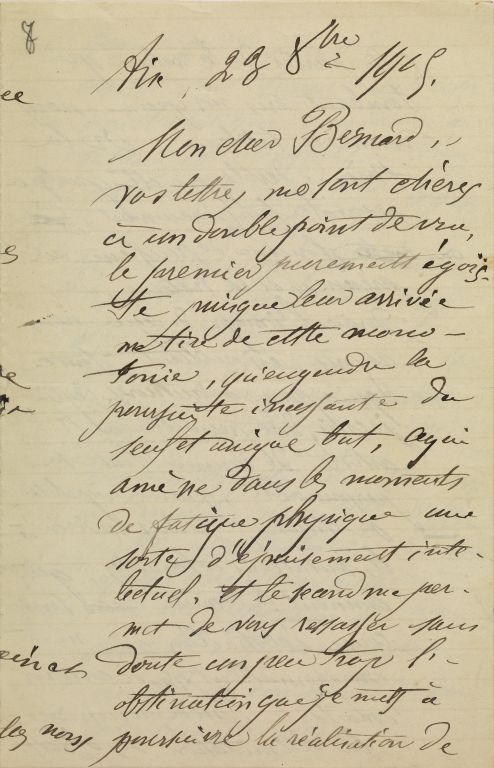 8
Aix, 23 8bre 1905.
Mon cher Bernard,
vos lettres me sont chères
à un double point de vue,
le premier purement égoïs-
te puisque leur arrivée
me tire de cette mono-
tonie, qu'engendre la
poursuite incessante du
seul et unique but, ce qui
amène dans les moments
de fatigue physique une
sorte d'épuisement inte-
lectuel. Et le second me per-
met de vous ressasser sans
doute un peu trop l'-
obstination que je mets à
poursuivre la réalisation de